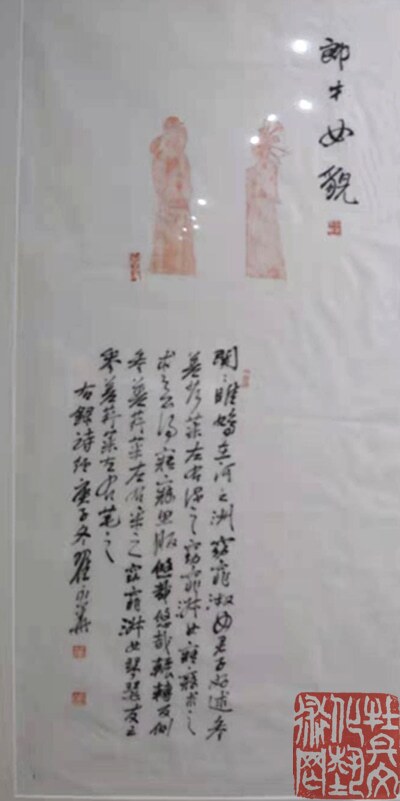 郎才女貌
關々雎鳩在河之洲窈窕淑女君子好逑參
差荇菜左右流之窈窕淑女寤寐求之
求之不得寤寐思服悠哉悠哉輾轉反側
參差荇菜左右采之窈窕淑女琴瑟友之
參差荇菜左右芼之
右録詩經庚子冬翟